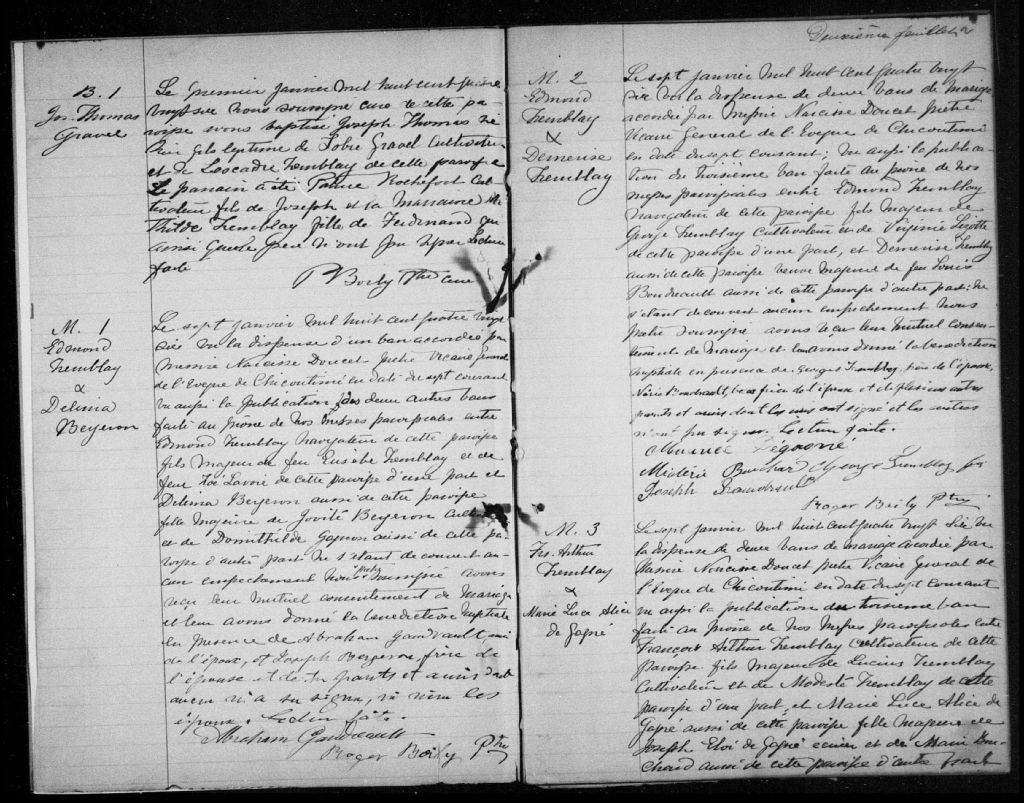 B. 1
Jos. Thomas
Gravel
Le premier janvier mil huit cent quatre
vingt six nous soussigné curé de cette pa-
roisse avons baptisé Joseph Thomas né
hier fils légitime de Gravel Cultivateur
et de Léocadie Tremblay de cette paroisse
Le parrain a été Rochefort Cul-
tivateur fils de Joseph et la Marraine Ma-
thilde Tremblay fille de Ferdinand qui
ainsi que le père n'ont pu signer Lecture
faite
Boily Ptre curé
M. 1
Edmond
Tremblay
&
Delima
Bergeron
Le sept janvier mil huit cent quatre vingt
six vu la dispense d'un ban accordée par
Messire Narcisse Doucet Prêtre Vicaire Général
de l'Evêque de Chicoutimi en date du sept courant
vu aussi la publication des deux autres bans
faite au prône de nos messes paroissiales entre
Edmond Tremblay Navigateur de cette paroisse
fils majeur de feu Eusèbe Tremblay et de
feue Zoé Lavoie de cette paroisse d'une part et
Delima Bergeron aussi de cette paroisse
fille majeure de Jovité Bergeron Cultiv
et de Domithilde Gagnon aussi de cette pa-
roisse d'autre part ne s'étant découvert au-
cun empêchement Nous Prêtre soussigné avons
reçu leur mutuel consentement de Mariage
et leur avons donné la bénédiction nuptiale
en présence de Abraham Gaudreault, ami
de l'époux, et Joseph Bergeron, frère de
l'épouse et de parents et amis dont
aucun n'a su signer, ni même les
époux. Lecture faite.
Abraham Gaudreault
Roger Boily Ptre
Deuxième feuillet 2
M. 2
Edmond
Tremblay
&
Demerise
Tremblay
Le sept janvier mil huit cent quatre vingt
six vu la dispense de deux bans de mariage
accordée par Messire Narcisse Doucet Prêtre
Vicaire Général de l'Evêque de Chicoutimi
en date du sept courant; vu aussi la publica-
tion du troisième ban faite au prône de nos
messes paroissiales entre Edmond Tremblay
navigateur de cette paroisse fils majeur de
George Tremblay Cultivateur et de Virginie Lizotte
de cette paroisse d'une part, et Demerise Tremblay
aussi de cette paroisse veuve majeure de feu Louis
Boudreault aussi de cette paroisse d'autre part: ne
s'étant découvert aucun empêchement nous
Prêtre soussigné avons reçu leur mutuel consen-
tement de Mariage et leur avons donné la bénédiction
nuptiale en présence de Georges Tremblay, père de l'époux,
Boudreault, beau frère de l'épouse et de plusieurs autres
parents et amis dont les uns ont signé et les autres
n'ont pu signer. Lecture faite.
Bouchard George Tremblay
Joseph
Roger Boily Ptre
M. 3
Frs. Arthur
Tremblay
&
Marie Luce Alice
de Gagné
Le sept janvier mil huit cent quatre vingt six vu
la dispense de deux bans de mariage accordée par
Messire Narcisse Doucet prêtre Vicaire Général de
l'Evêque de Chicoutimi en date du sept courant
vu aussi la publication du troisième ban
faite au prône de nos messes paroissiales entre
François Arthur Tremblay Cultivateur de cette
paroisse fils majeur de Lucius Tremblay
Cultivateur et de Modeste Tremblay de cette
paroisse d'une part, et Marie Luce Alice de
Gagné aussi de cette paroisse fille majeure de
Joseph Eloi de Gagné et de Marie Bou-
chard aussi de cette paroisse d'autre part